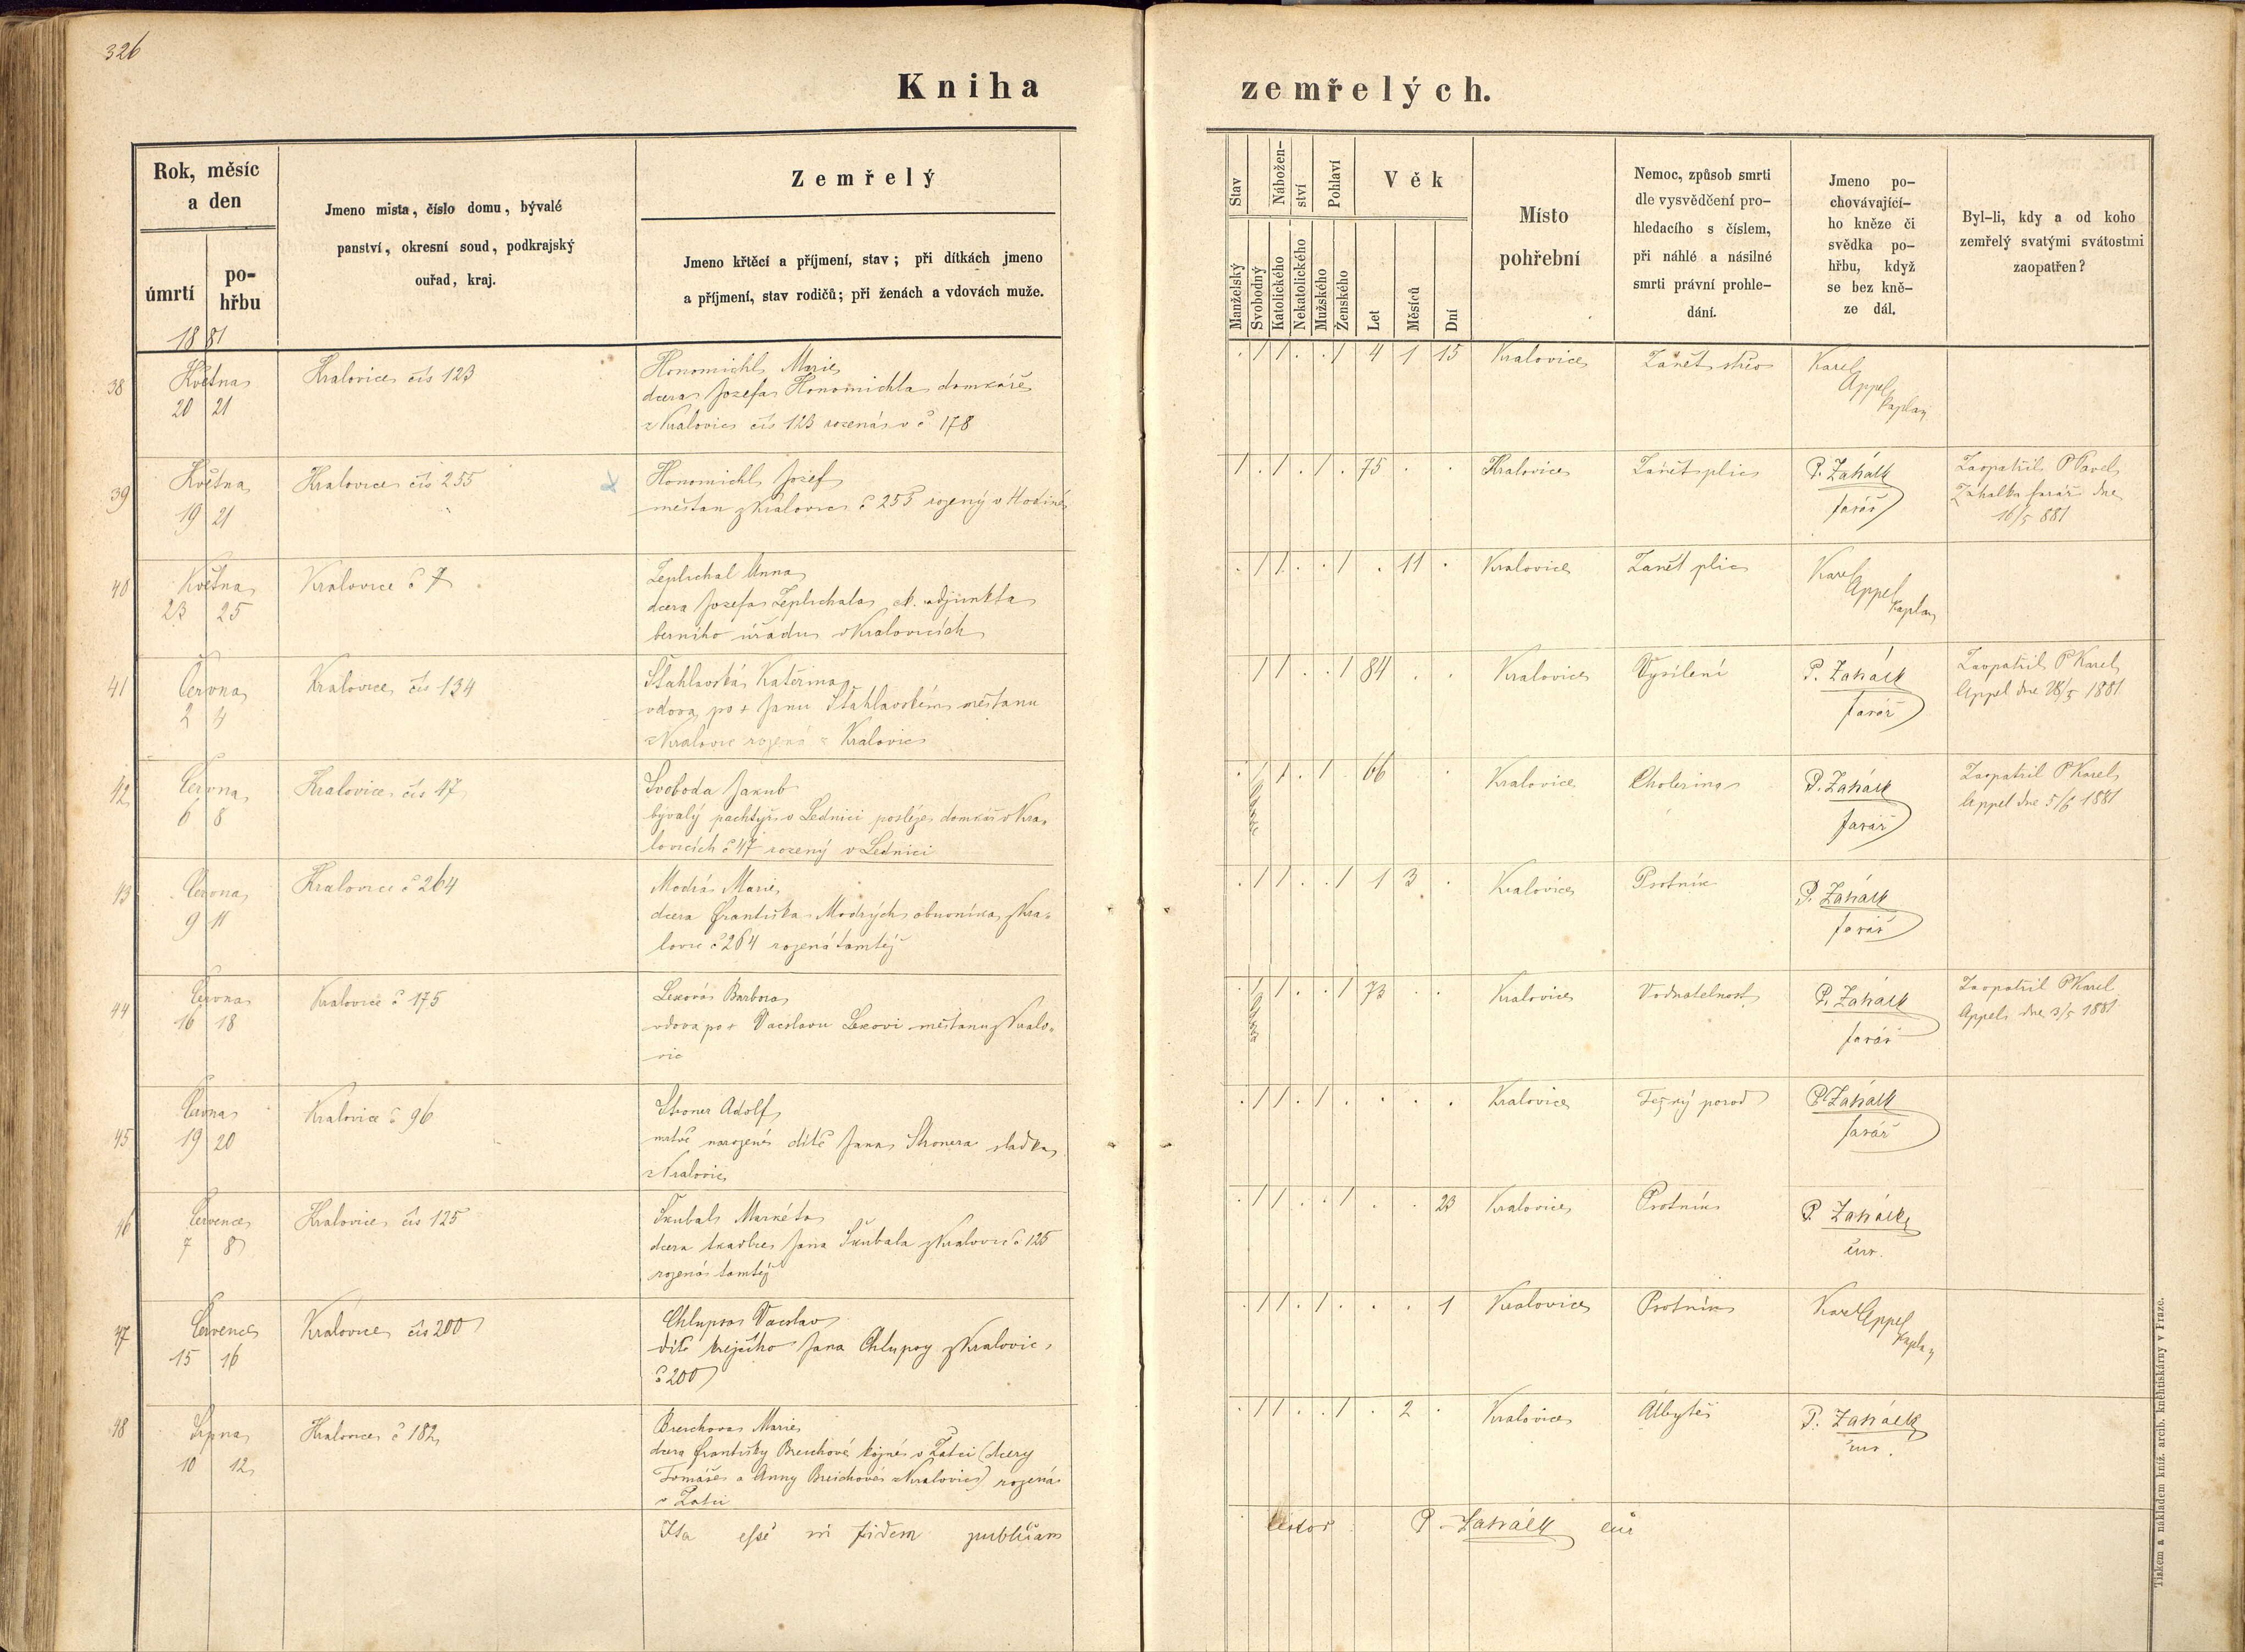 326
Kniha zemřelých.
Rok, měsíc
a den
úmrtí
po-
hřbu
1881
Jmeno mista, číslo domu, bývalé
panství, okresní soud, podkrajský
ouřad, kraj.
Zemřelý
Jmeno křtěcí a příjmení, stav; při dítkách jmeno
a příjmení, stav rodičů; při ženách a vdovách muže.
Stav
Manželský
Svobodný
Nábožen-
ství
Katolického
Nekatolického
Pohlaví
Mužského
Ženského
Věk
Let
Měsíců
Dní
Místo
pohřební
Nemoc, způsob smrti
dle vysvědčení pro-
hledacího s číslem,
při náhlé a násilné
smrti právní prohle-
dání.
Jmeno po-
chovávající-
ho kněze či
svědka po-
hřbu, když
se bez kně-
ze dál.
Byl-li, kdy a od koho
zemřelý svatými svátostmi
zaopatřen?
38
Května
20 21
Kralovice čís 123
Honomichl Marie
dcera Josefa Honomichla domkáře
z Kralovic čís 123 rozená v č 178
. / / . . / 4 1 15
Kralovice
Zánět střev
Karel
Appel
kaplan
39
Května
19 21
Kralovice čís 255
Honomichl Josef
měšťan z Kralovic č 255 rozený v Hodině
/ . / . / . 75 . .
Kralovice
Zánět plic
P. Zahálk
farář
Zaopatřil P Pavel
Záhalka farář dne
16/5 881
40
Května
23 25
Kralovice č 7
Zeplichal Anna
dcera Josefa Zeplichala c.k. adjunkta
berního úřadu v Kralovicích
. / / . . / . 11 .
Kralovice
Zánět plic
Karel
Appel
kaplan
41
Června
2 4
Kralovice čís 134
Šťahlavská Kateřina
vdova po + Janu Šťahlavském měšťanu
z Kralovic rozená z Kralovic
. / / . . / 84 . .
Kralovice
Vysílení
P. Zahálk
farář
Zaopatřil P Karel
Appel dne 28/5 1881
42
Června
6 8
Kralovice čís 47
Svoboda Jakub
bývalý pachtýř v Lednici posléze domkář v Kra-
lovicích č 47 rozený v Lednici
. / / . / . 66 .
Kralovice
Cholerina
P. Zahálk
farář
Zaopatřil P Karel
Appel dne 5/6 1881
43
Června
9 11
Kralovice č 264
Modrá Marie
dcera Františka Modrých obuvníka z Kra-
lovic č 264 rozená tamtéž
. / / . . / 1 3 .
Kralovice
Psotník
P. Zahálk
farář
44
Června
16 18
Kralovice č 175
Lexová Barbora
vdova po + Vácslavu Lexovi měšťanu z Kralo-
vic
. / / . . / 73 . .
Kralovice
Vodnatelnost
P. Zahálk
farář
Zaopatřil P Karel
Appel dne 3/5 1881
45
Června
19 20
Kralovice č 96
Stroner Adolf
mrtvě narozené dítě Jana Stronera sladka
z Kralovic
. / / . / . . . .
Kralovice
Težký porod
P Zahálk
farář
46
Července
7 8
Kralovice čís 125
Škubal Markéta
dcera tkadlce Jana Škubala z Kralovic č 125
rozená tamtéž
. / / . . / . . 23
Kralovice
Psotník
P. Zahálk
cur.
47
Července
15 16
Kralovice čís 200
Chlupsa Vácslav
dítě krejčího Jana Chlupsy z Kralovic
č 200
. / / . / . . . 1
Kralovice
Psotník
Karel Appel
kaplan
48
Srpna
10 12
Kralovice č 182
Breichova Marie
dcera Františky Breichové kojné v Žatci (dcery
Tomáše a Anny Breichové z Kralovic) rozená
v Žatci
. / / . . / . 2 .
Kralovice
Úbytě
P. Zahálk
cur.
Ita esse in fidem publicam
testor P. Zahálk cur
Tiskem a nákladem kníž. arcib. kněhtiskárny v Praze.